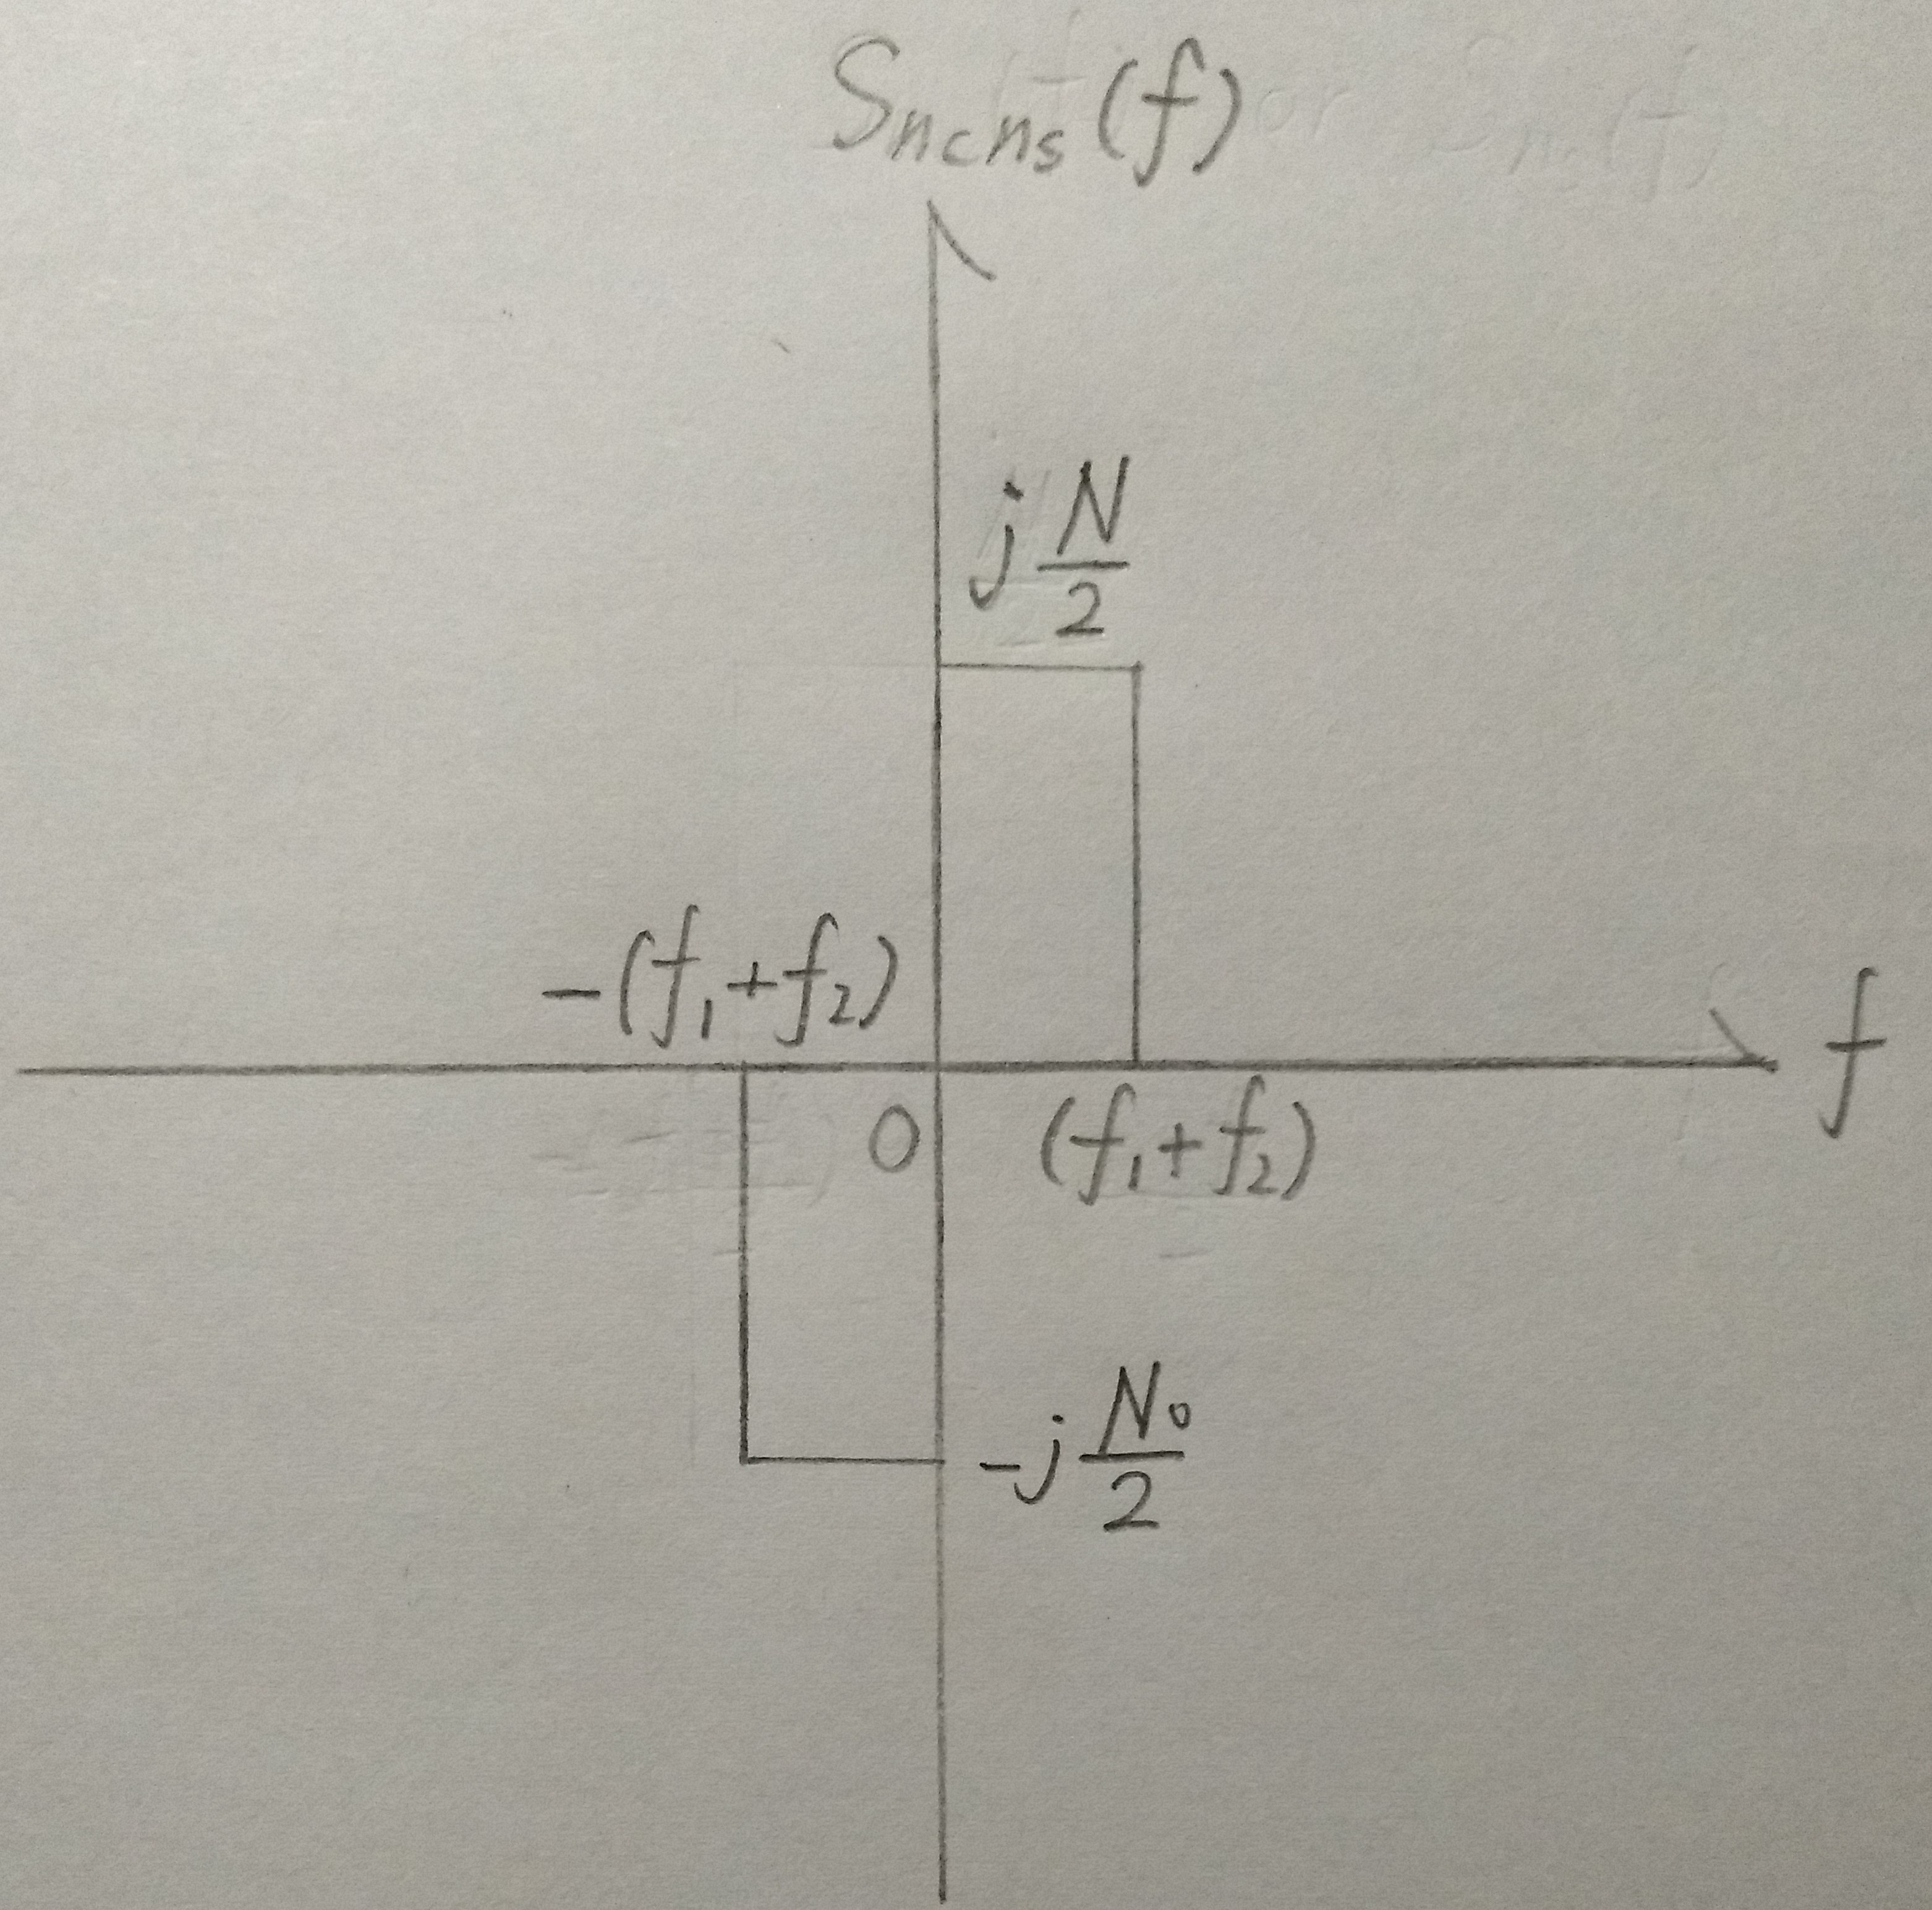 Sncns(f)
j N/2
-(f1+f2)
f
0
(f1+f2)
-j N0/2